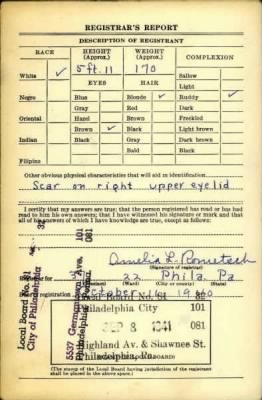 REGISTRAR'S REPORT
DESCRIPTION OF REGISTRANT
RACE HEIGHT (Approx.) WEIGHT (Approx.) COMPLEXION
White ✓ 5 ft. 11 170 Sallow
EYES HAIR Light
Negro Blue Blonde ✓ Ruddy ✓
Gray Red Dark
Oriental Hazel Brown Freckled
Brown ✓ Black Light brown
Indian Black Gray Dark brown
Bald Black
Filipino
Other obvious physical characteristics that will aid in identification
Scar on right upper eyelid
I certify that my answers are true; that the person registered has read or has had
read to him his own answers; that I have witnessed his signature or mark and that
all of his answers of which I have knowledge are true, except as follows:
Amelia L.
(Signature of registrar)
Registrar for 22 Phila Pa
(Ward) (City or county) (State)
Date of registration October 16 1940
Local Board No.
City of Philadelphia
101
081
5537 Germantown Ave.
Philadelphia
Local Board No.
Philadelphia City 101
SEP 8 1941 081
Highland Av. & Shawnee St.
Philadelphia, Pa.
(The stamp of the Local Board having jurisdiction of the registrant
shall be placed in the above space.)